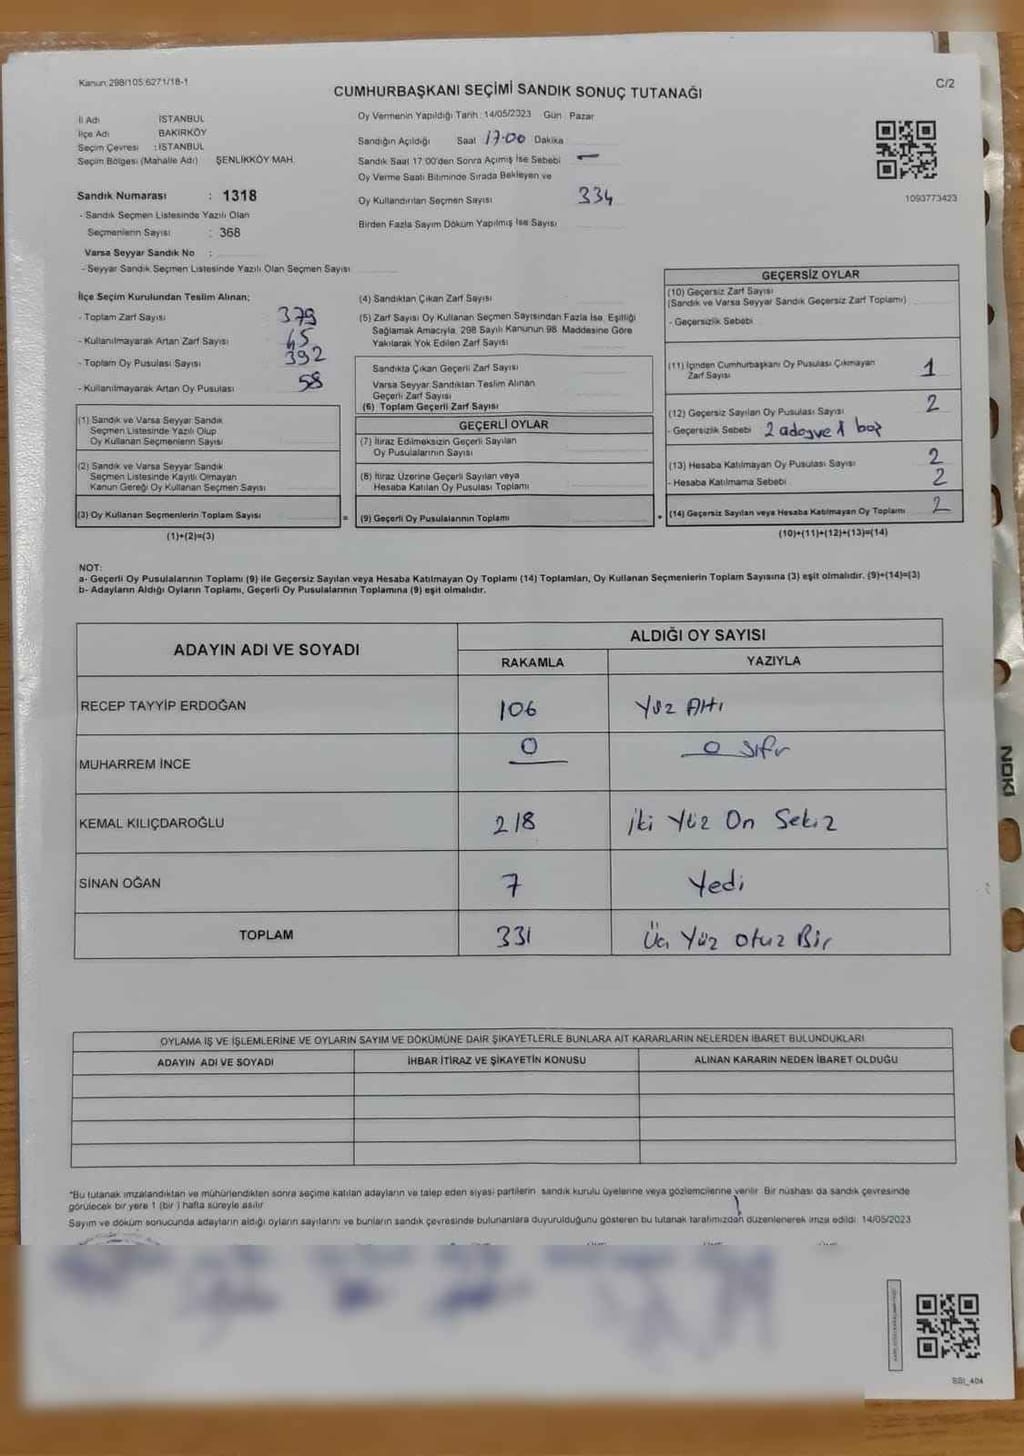 Kanun:298/105 6271/18-1
C/2
CUMHURBAŞKANI SEÇİMİ SANDIK SONUÇ TUTANAĞI
İl Adı İSTANBUL
İlçe Adı BAKIRKÖY
Seçim Çevresi : İSTANBUL
Seçim Bölgesi (Mahalle Adı) ŞENLİKKÖY MAH.
Oy Vermenin Yapıldığı Tarih : 14/05/2023 Gün Pazar
Sandığın Açıldığı Saat 17:00 Dakika
Sandık Saat 17:00'den Sonra Açılmış İse Sebebi —
Oy Verme Saati Bitiminde Sırada Bekleyen ve
Oy Kullandırılan Seçmen Sayısı 334
Birden Fazla Sayım Döküm Yapılmış İse Sayısı
1093773423
Sandık Numarası : 1318
- Sandık Seçmen Listesinde Yazılı Olan
Seçmenlerin Sayısı : 368
Varsa Seyyar Sandık No :
- Seyyar Sandık Seçmen Listesinde Yazılı Olan Seçmen Sayısı
İlçe Seçim Kurulundan Teslim Alınan;
- Toplam Zarf Sayısı 379
- Kullanılmayarak Artan Zarf Sayısı 45
- Toplam Oy Pusulası Sayısı 392
- Kullanılmayarak Artan Oy Pusulası 58
(1) Sandık ve Varsa Seyyar Sandık
Seçmen Listesinde Yazılı Olup
Oy Kullanan Seçmenlerin Sayısı
(2) Sandık ve Varsa Seyyar Sandık
Seçmen Listesinde Kayıtlı Olmayan
Kanun Gereği Oy Kullanan Seçmen Sayısı
(3) Oy Kullanan Seçmenlerin Toplam Sayısı =
(1)+(2)=(3)
(4) Sandıktan Çıkan Zarf Sayısı
(5) Zarf Sayısı Oy Kullanan Seçmen Sayısından Fazla İse, Eşitliği
Sağlamak Amacıyla, 298 Sayılı Kanunun 98. Maddesine Göre
Yakılarak Yok Edilen Zarf Sayısı
Sandıkta Çıkan Geçerli Zarf Sayısı
Varsa Seyyar Sandıktan Teslim Alınan
Geçerli Zarf Sayısı
(6) Toplam Geçerli Zarf Sayısı
GEÇERLİ OYLAR
(7) İtiraz Edilmeksizin Geçerli Sayılan
Oy Pusulalarının Sayısı
(8) İtiraz Üzerine Geçerli Sayılan veya
Hesaba Katılan Oy Pusulası Toplamı
(9) Geçerli Oy Pusulalarının Toplamı
GEÇERSİZ OYLAR
(10) Geçersiz Zarf Sayısı
(Sandık ve Varsa Seyyar Sandık Geçersiz Zarf Toplamı)
- Geçersizlik Sebebi
(11) İçinden Cumhurbaşkanı Oy Pusulası Çıkmayan
Zarf Sayısı 1
(12) Geçersiz Sayılan Oy Pusulası Sayısı 2
- Geçersizlik Sebebi 2 adet ve 1 boş
(13) Hesaba Katılmayan Oy Pusulası Sayısı 2
- Hesaba Katılmama Sebebi 2
(14) Geçersiz Sayılan veya Hesaba Katılmayan Oy Toplamı 2
(10)+(11)+(12)+(13)=(14)
NOT:
a- Geçerli Oy Pusulalarının Toplamı (9) ile Geçersiz Sayılan veya Hesaba Katılmayan Oy Toplamı (14) Toplamları, Oy Kullanan Seçmenlerin Toplam Sayısına (3) eşit olmalıdır. (9)+(14)=(3)
b- Adayların Aldığı Oyların Toplamı, Geçerli Oy Pusulalarının Toplamına (9) eşit olmalıdır.
ADAYIN ADI VE SOYADI
ALDIĞI OY SAYISI
RAKAMLA YAZIYLA
RECEP TAYYİP ERDOĞAN 106 Yüz Altı
MUHARREM İNCE 0 0 Sıfır
KEMAL KILIÇDAROĞLU 218 İki Yüz On Sekiz
SİNAN OĞAN 7 Yedi
TOPLAM 331 Üç Yüz Otuz Bir
OYLAMA İŞ VE İŞLEMLERİNE VE OYLARIN SAYIM VE DÖKÜMÜNE DAİR ŞİKAYETLERLE BUNLARA AİT KARARLARIN NELERDEN İBARET BULUNDUKLARI
ADAYIN ADI VE SOYADI İHBAR İTİRAZ VE ŞİKAYETİN KONUSU ALINAN KARARIN NEDEN İBARET OLDUĞU
*Bu tutanak imzalandıktan ve mühürlendikten sonra seçime katılan adayların ve talep eden siyasi partilerin sandık kurulu üyelerine veya gözlemcilerine verilir. Bir nüshası da sandık çevresinde
görülecek bir yere 1 (bir) hafta süreyle asılır
Sayım ve döküm sonucunda adayların aldığı oyların sayılarını ve bunların sandık çevresinde bulunanlara duyurulduğunu gösteren bu tutanak tarafımızdan düzenlenerek imza edildi. 14/05/2023
NOKI
SBI_404